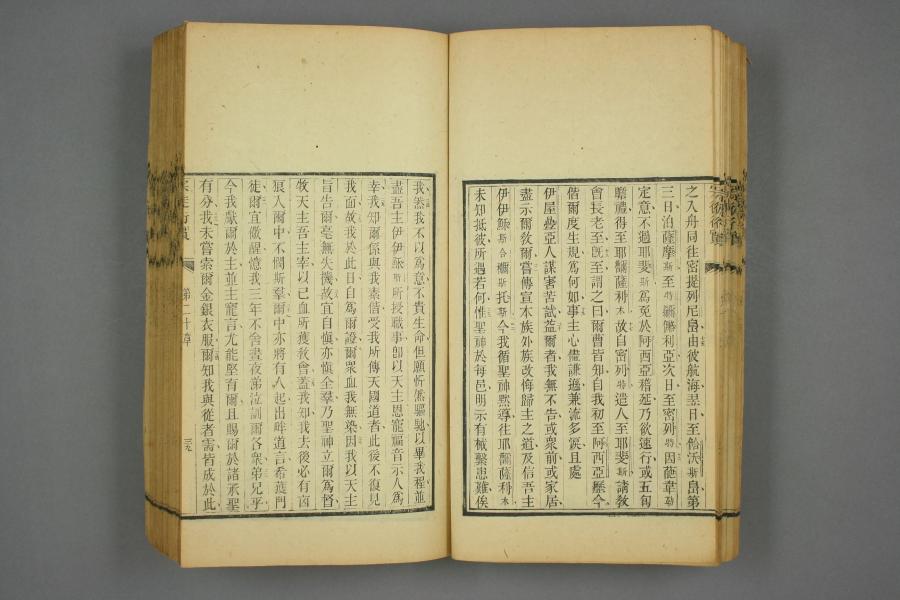 之入舟同往密提列尼島由彼航海翌日至恰沃斯島第
三日泊薩摩斯至特羅艦利亞次日至密列特因葩韋勒
定意不過耶斐斯爲免於阿西亞稽延乃欲速行或五旬
瞻禮得至耶爾薩利木故自密列特遣人至耶斐斯請教
會長老至旣至謂之曰爾曹皆知自我初至阿西亞歷今
偕爾度生規爲何如事主心儘謙遜兼流多淚且處
伊屋疊亞人謀害苦試益爾者我無不告或衆前或家居
盡示爾教爾嘗傳宣本族外族改悔歸主之道及信吾主
伊伊穌斯合利斯托斯今我循聖神默導往耶爾薩利木
未知抵彼所遇若何惟聖神於每邑明示有械繫患難俟
我然我不以爲意不貴生命但願忻然驅馳以畢我程並
盡吾主伊伊穌斯所授職事卽以天主恩寵福音示人爲
幸我知爾係與我素偕受我所傳天國道者此後不復見
我面故我於此日自爲爾證爾眾血我無染因我以天主
旨告爾毫無失機故宜自愼亦愼全羣乃聖神立爾爲督
牧天主吾主宰以己血所獲教會蓋我知我去後必有卤
狼入爾中不憫斯羣爾中亦將有人起出畔道言希蓗門
徒爾宜儆醒憶我三年不舍晝夜涕泣訓爾各衆弟兄乎
今我獻爾於主並主寵言尤能堅育爾且賜爾於諸承聖
有分我未嘗索爾金銀衣服爾知我與從者需皆成於此
宗徒行實
第二十章
三九